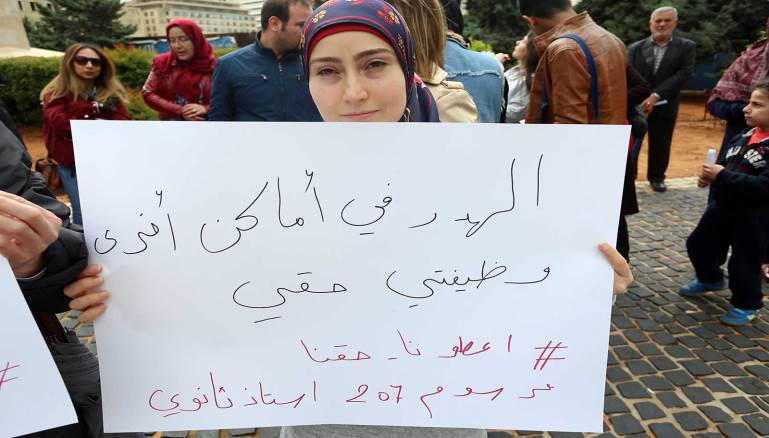 الهدر في أماكن أخرى
وظيفتي حقي
# اعطونا حقنا
مرسوم 207 استاذ ثانوي
#